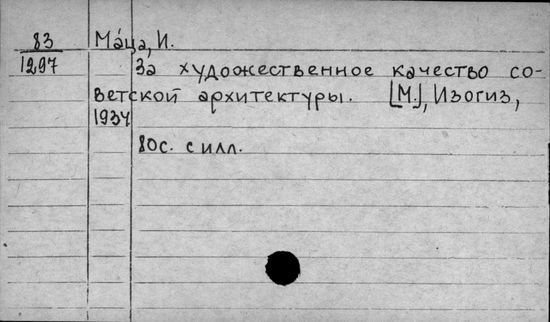 83 Ма́ца, И.
1297 За художественное качество со-
ветской архитектуры. [М.], Изогиз,
1934
80с. с илл.